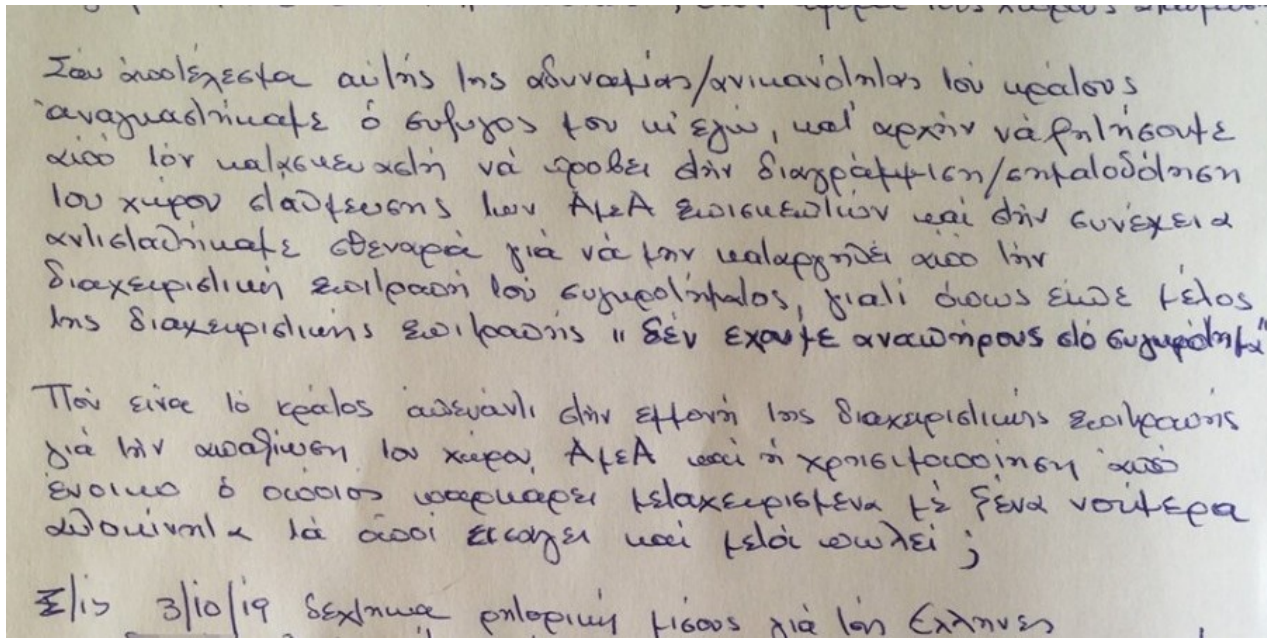 τους χώρους
Σαν αποτέλεσμα αυτής της αδυναμίας/ανικανότητας του κράτους
αναγκαστήκαμε ό συζυγος μου κι' εγώ, κατ' αρχήν νά ζητήσουμε
από τόν κατασκευαστή νά προβει στήν διαγράμμιση/σηματοδότηση
του χώρου στάθμευσης των ΑμεΑ επισκεπτών και στήν συνέχεια
αντισταθήκαμε σθεναρά γιά νά μην καταργηθεί από τήν
διαχειριστική επιτροπή του συγκροτήματος, γιατί όπως είπε μέλος
της διαχειριστικής επιτροπής "δέν εχουμε αναπήρους στό συγκρότημα"
Πού είναι τό κράτος απέναντι στήν εμμονή της διαχειριστικής επιτροπής
γιά τήν απαξίωση του χώρου ΑμεΑ και ή χρησιμοποίηση από
ένοικο ό οποίος παρκάρει μεταχειρισμένα μέ ξένα νούμερα
αυτοκίνητα τά οποί εισάγει και μετά πωλεί;
Στις 3/10/19 δεχτηκα ρητορική μίσους γιά τόυς Ελληνες